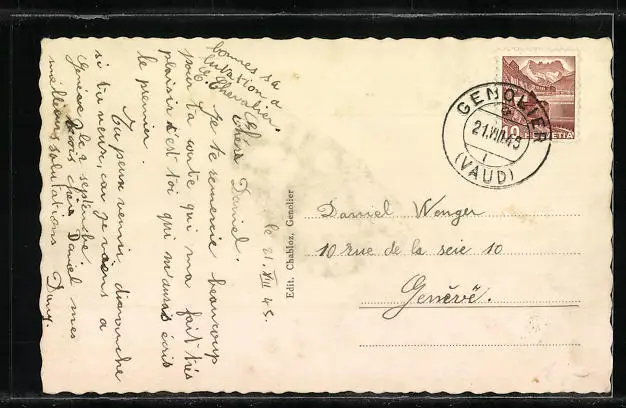 bonnes sa
lutation a
E. Chevalier.
le 21. VIII 45.
Cher Daniel.
Je te remercie beaucoup
pour ta carte qui m'a fait très
plaisir c'est toi qui m'auras écris
le premier.
Tu peux venir dimanche
si tu veux, car je viens a
Genève le 2 septembre.
Daniel mes
meilleurs salutations Dany.
Edit. Chabloz, Genolier
GENOLIER
21.VIII.45
(VAUD)
10 HELVETIA
Daniel Wenger
10 rue de la scie 10
Genève.